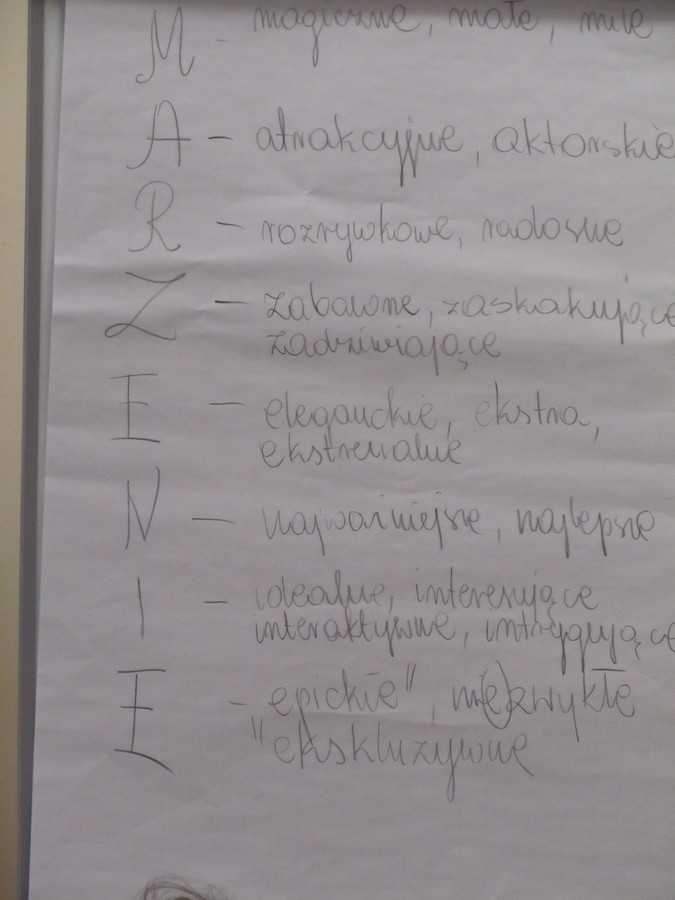 M - magiczne, małe, miłe
A - atrakcyjne, aktorskie
R - rozrywkowe, radosne
Z - zabawne, zaskakujące
zadziwiające
E - eleganckie, ekstra,
ekstremalne
N - najważniejsze, najlepsze
I - idealne, interesujące
interaktywne, intrygujące
E - epickie", ni(e)zwykłe
"ekskluzywne